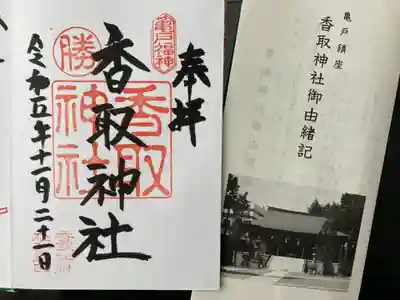 奉拝
亀戸福神
勝
香取神社
香取
神社
令和五年十一月二十一日
亀戸鎮座
香取神社御由緒記